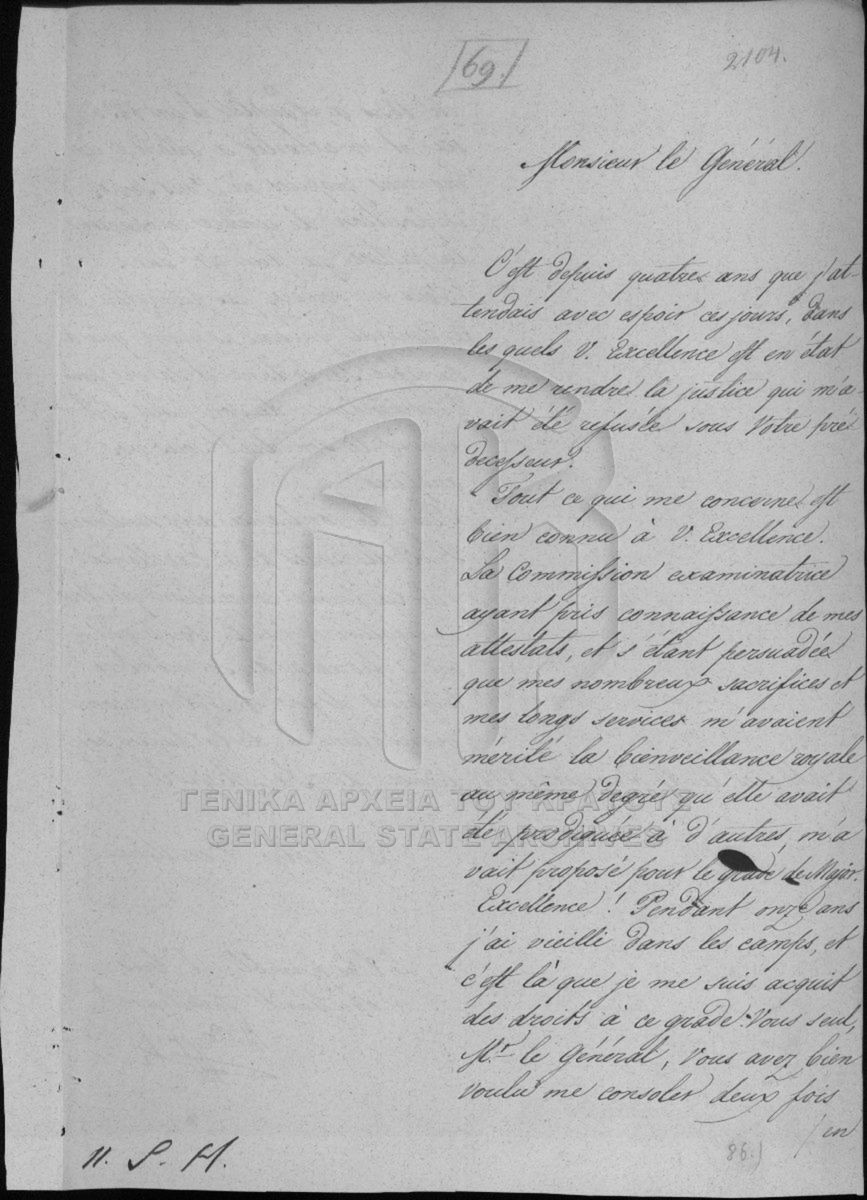 69.
2104.
Monsieur le Général.
C'est depuis quatre ans que j'at
tendais avec espoir ces jours, dans
les quels V. Excellence est en état
de me rendre la justice qui m'a
vait été refusée sous Votre pré
decesseur.
Tout ce qui me concerne est
bien connu à V. Excellence.
La Commission examinatrice
ayant pris connaissance de mes
attestats, et s'étant persuadée
que mes nombreux sacrifices et
mes longs services m'avaient
mérité la bienveillance royale
au même degré qu'elle avait
été prodiguée à d'autres, m'a
vait proposé pour le grade de Major.
Excellence! Pendant onze ans
j'ai vieilli dans les camps, et
c'est là que je me suis acquit
des droits à ce grade. Vous seul,
Mr. le Général, Vous avez bien
voulu me consoler deux fois
/en
11. S. H.
86.)
ΓΕΝΙΚΑ ΑΡΧΕΙΑ ΤΟΥ ΚΡΑΤΟΥΣ
GENERAL STATE ARCHIVES